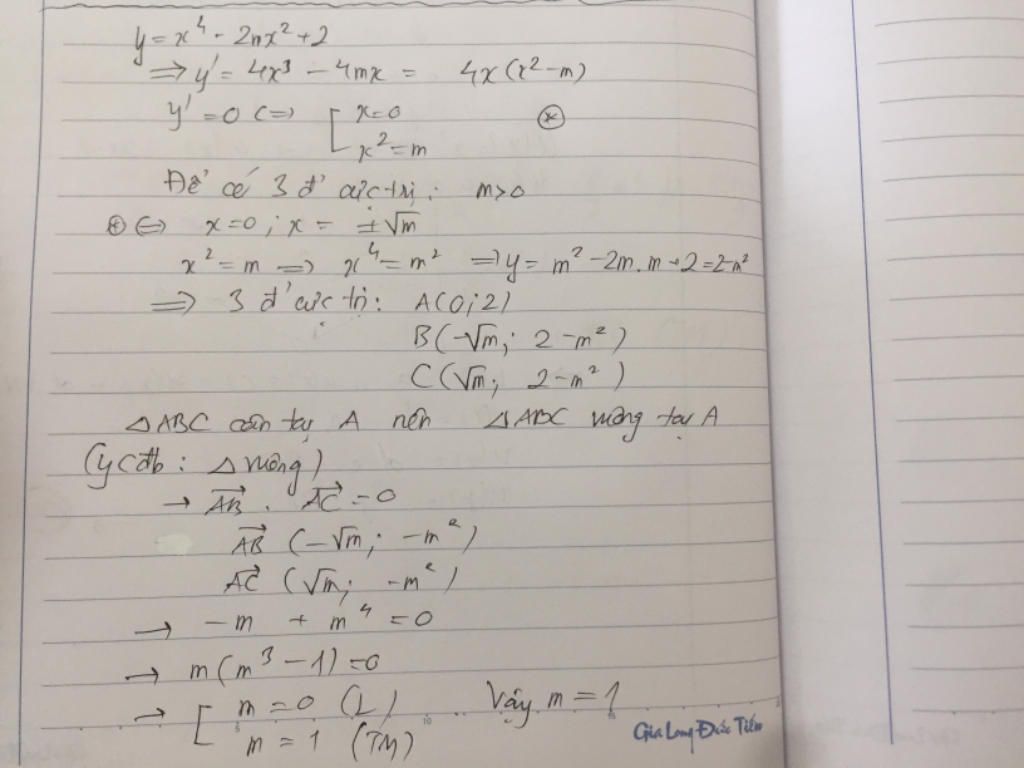 y = x⁴ - 2mx² + 2
=> y' = 4x³ - 4mx = 4x(x² - m)
y' = 0 <=> [ x = 0 (*)
x² = m
Để có 3 đ' cực trị : m > 0
(*) <=> x = 0 ; x = ±√m
x² = m => x⁴ = m² => y = m² - 2m.m + 2 = 2 - m²
=> 3 đ' cực trị : A(0; 2)
B(-√m; 2 - m²)
C(√m; 2 - m²)
△ABC cân tại A nên △ABC vuông tại A
(ycđb : △ vuông)
→ AB⃗ . AC⃗ = 0
AB⃗ (-√m; -m²)
AC⃗ (√m; -m²)
→ -m + m⁴ = 0
→ m(m³ - 1) = 0
→ [ m = 0 (L) Vậy m = 1
m = 1 (TM)
5 10 15
Gia Long Đức Tiến